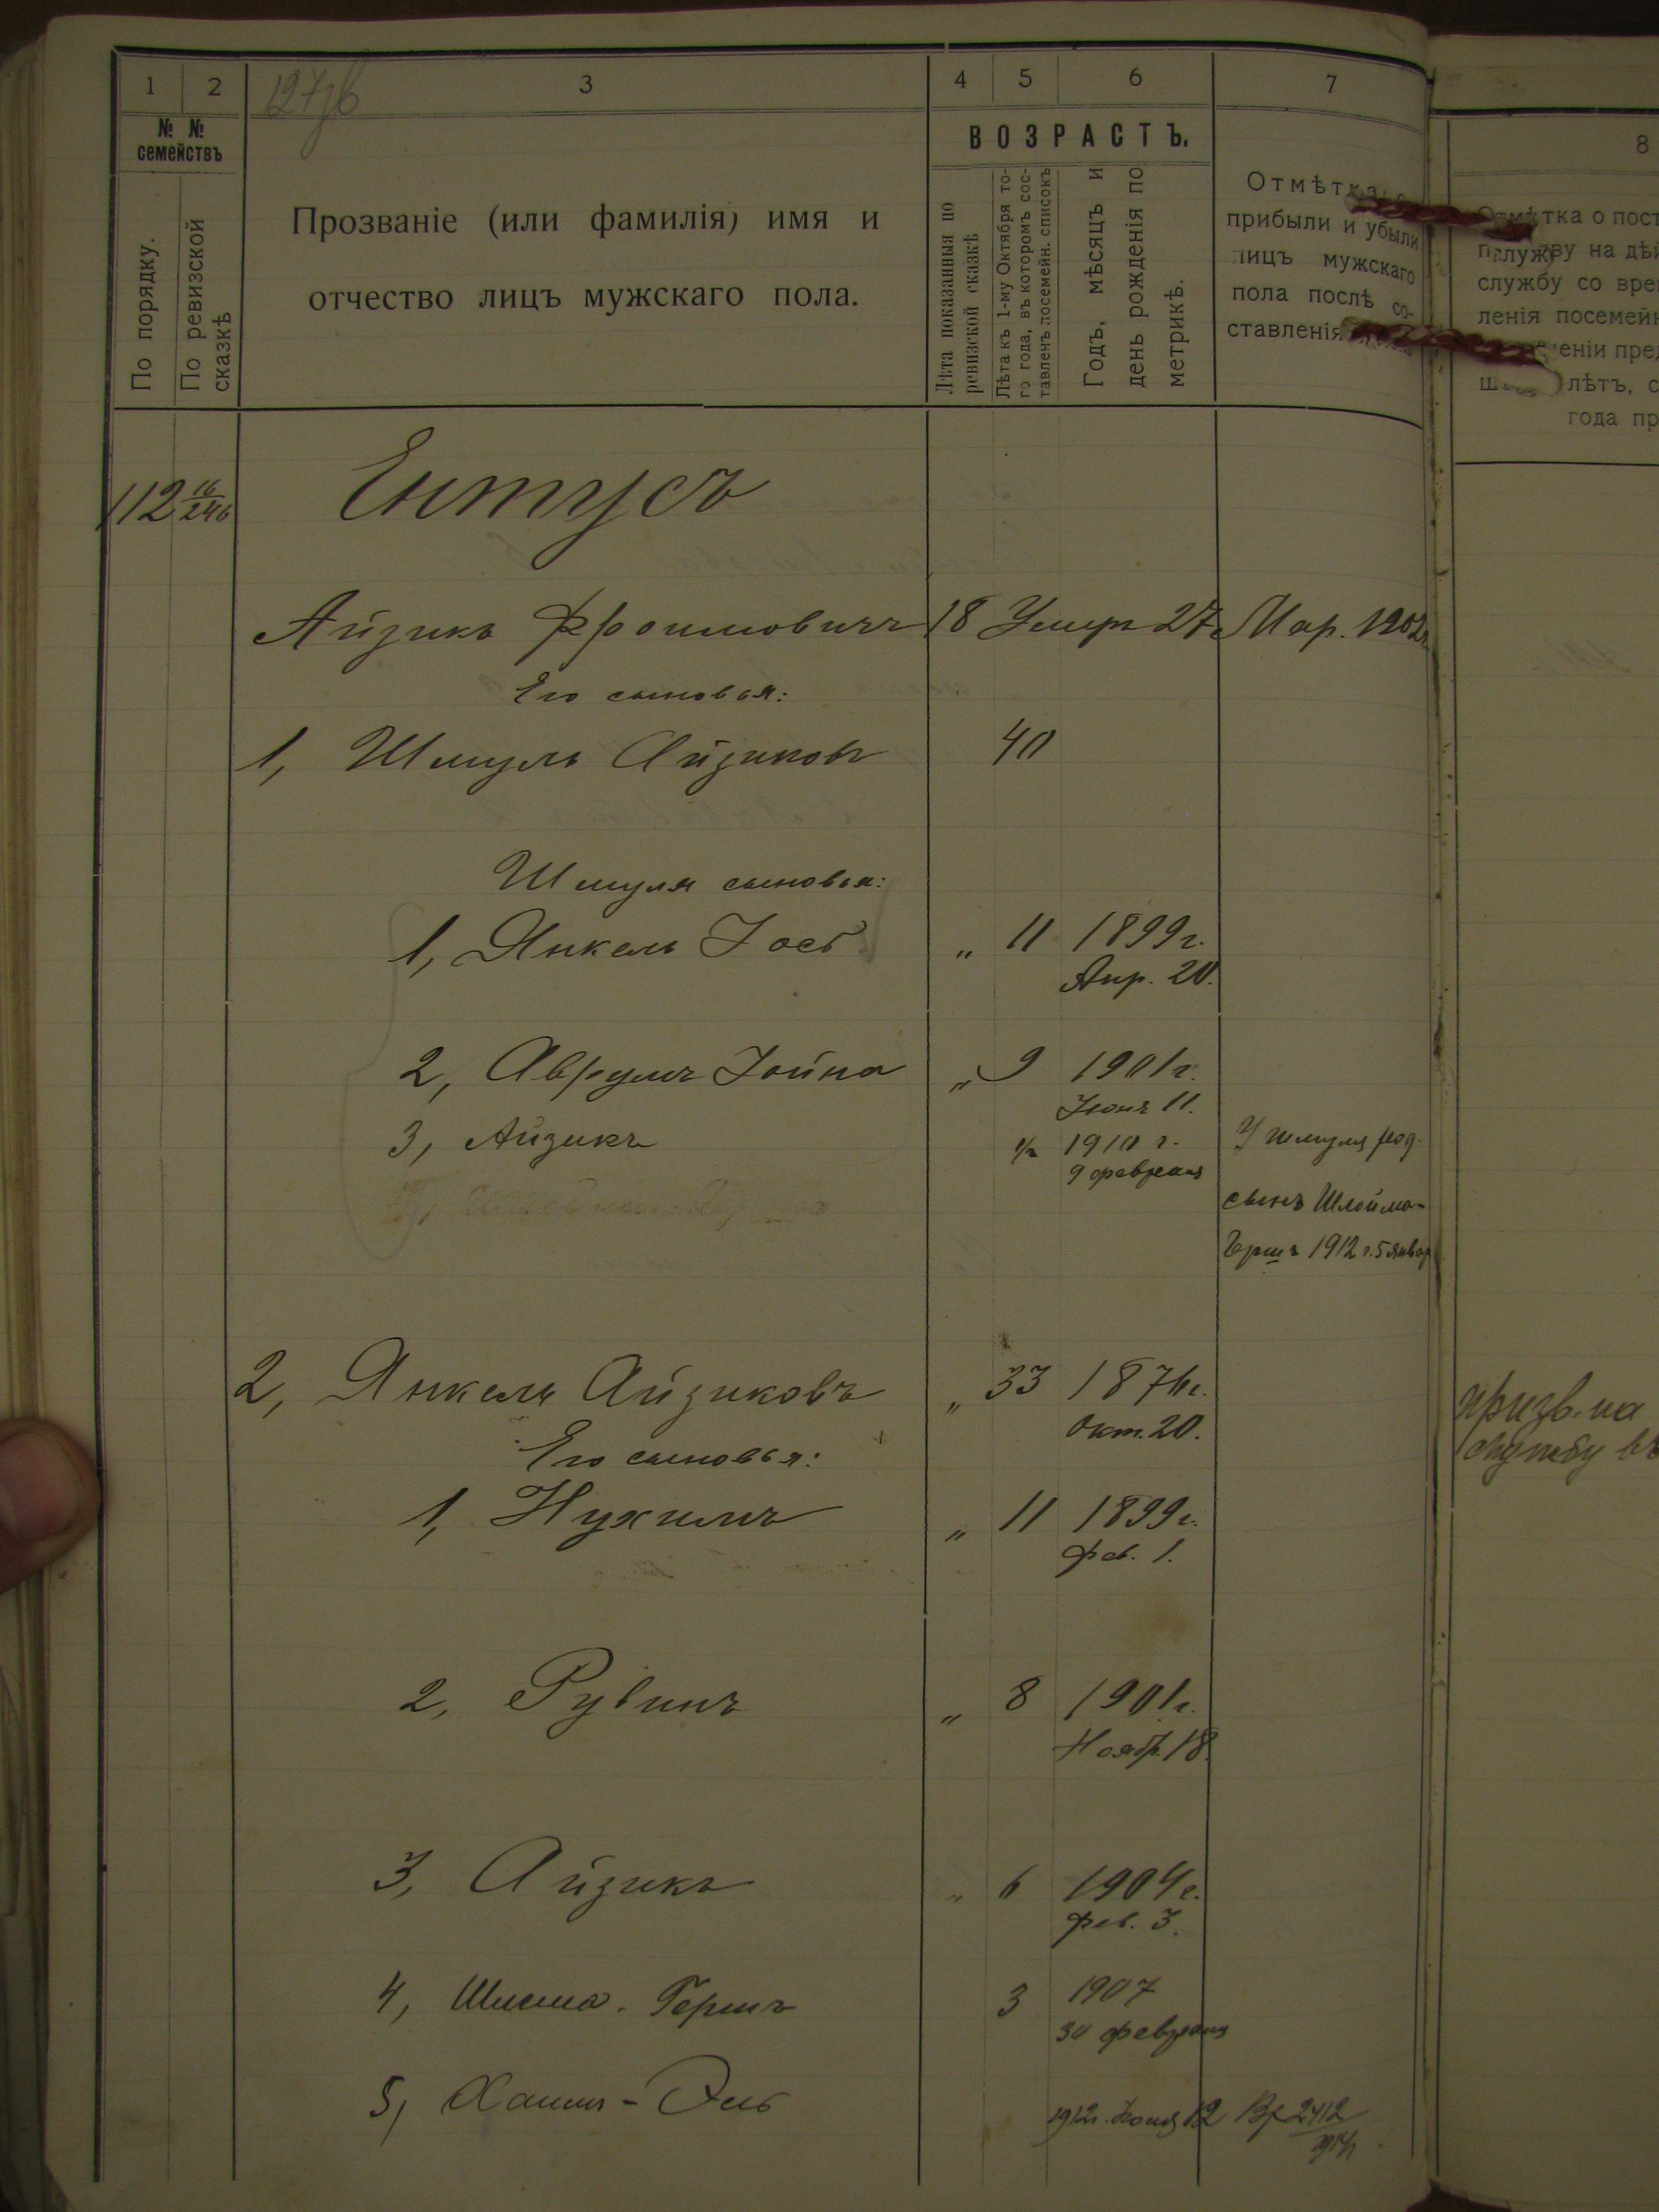 1 2 3 4 5 6 7
№ № семействъ
По порядку.
По ревизской сказкѣ
Прозваніе (или фамилія) имя и
отчество лицъ мужскаго пола.
ВОЗРАСТЪ.
Лѣта показанныя по ревизской сказкѣ
Лѣта къ 1-му Октября то-
го года, въ которомъ сос-
тавленъ посемейн. списокъ
Годъ, мѣсяцъ и
день рожденія по
метрикѣ.
прибыли и убыли
лицъ мужскаго
пола послѣ со-
ставленія
8
службу со
ленія
лѣтъ,
года
112 16/246 Ентусъ
Айзикъ Фроимовичъ 18 Умеръ 27 Мар. 1902г
Его сыновья:
1, Шмуль Айзиковъ 40
Шмуля сыновья:
1, Янкель Іосъ „ 11 1899г.
Апр. 20.
2, Аврумъ Іойна „ 9 1901г.
Іюня 11.
3, Айзикъ 1910 г.
9 февраля
У Шмуля род.
сынъ Шлойма-
Гершъ 1912 г. 5 январ
2, Янкель Айзиковъ „ 33 1876г.
Окт. 20.
призв. на
службу въ
Его сыновья:
1, Нухимъ „ 11 1899г.
Фев. 1.
2, Рувинъ „ 8 1901г.
Ноябр. 18.
3, Айзикъ „ 6 1904г.
Фев. 3.
4, Гершъ 3 1907
30 февраля
5, Хаимъ- 1912г. Іюня 12